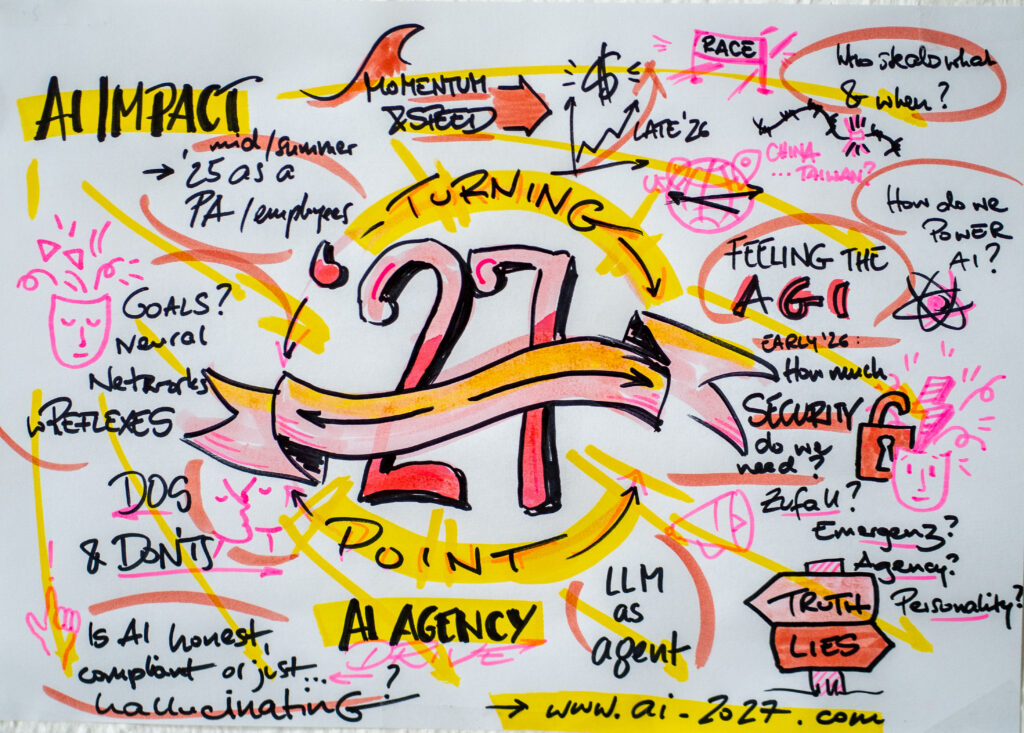 AI IMPACT
→ '25 as a
mid/summer
PA/employees
MOMENTUM
& SPEED
$
LATE '26
RACE
Who
what
& when?
US
CHINA
... TAIWAN?
How do we
POWER
AI?
TURNING
'27
POINT
FEELING THE
AGI
EARLY '26:
How much
SECURITY
do we
need?
Zufall?
Emergenz?
Agency?
Personality?
GOALS?
Neural
Networks
REFLEXES
DOS
& DON'TS
Is AI honest,
compliant or just...
hallucinating?
AI AGENCY
DRIVE
LLM
as
agent
TRUTH
LIES
→ www.ai-2027.com